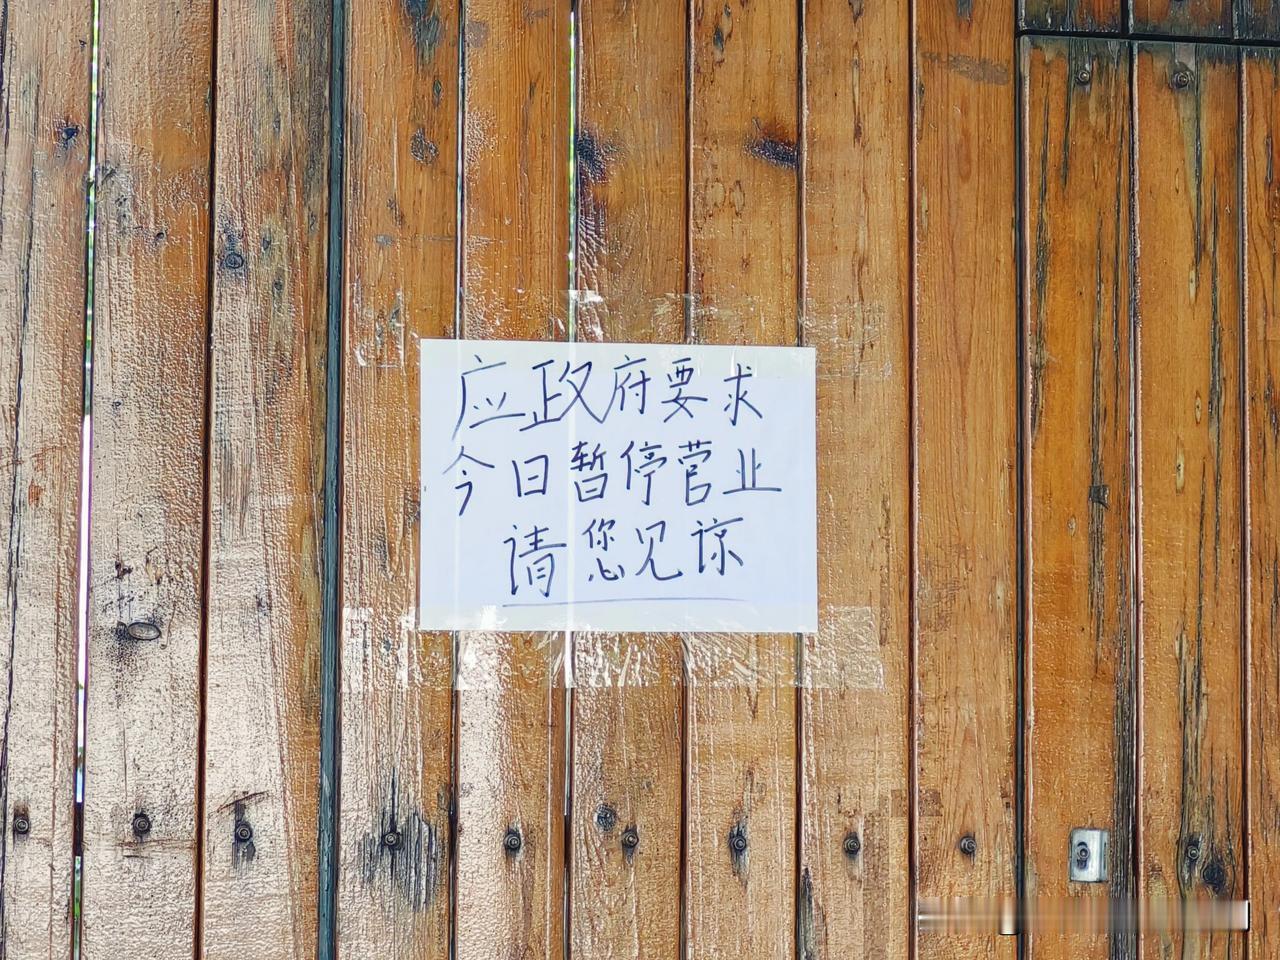 应政府要求
今日暂停营业
请您见谅